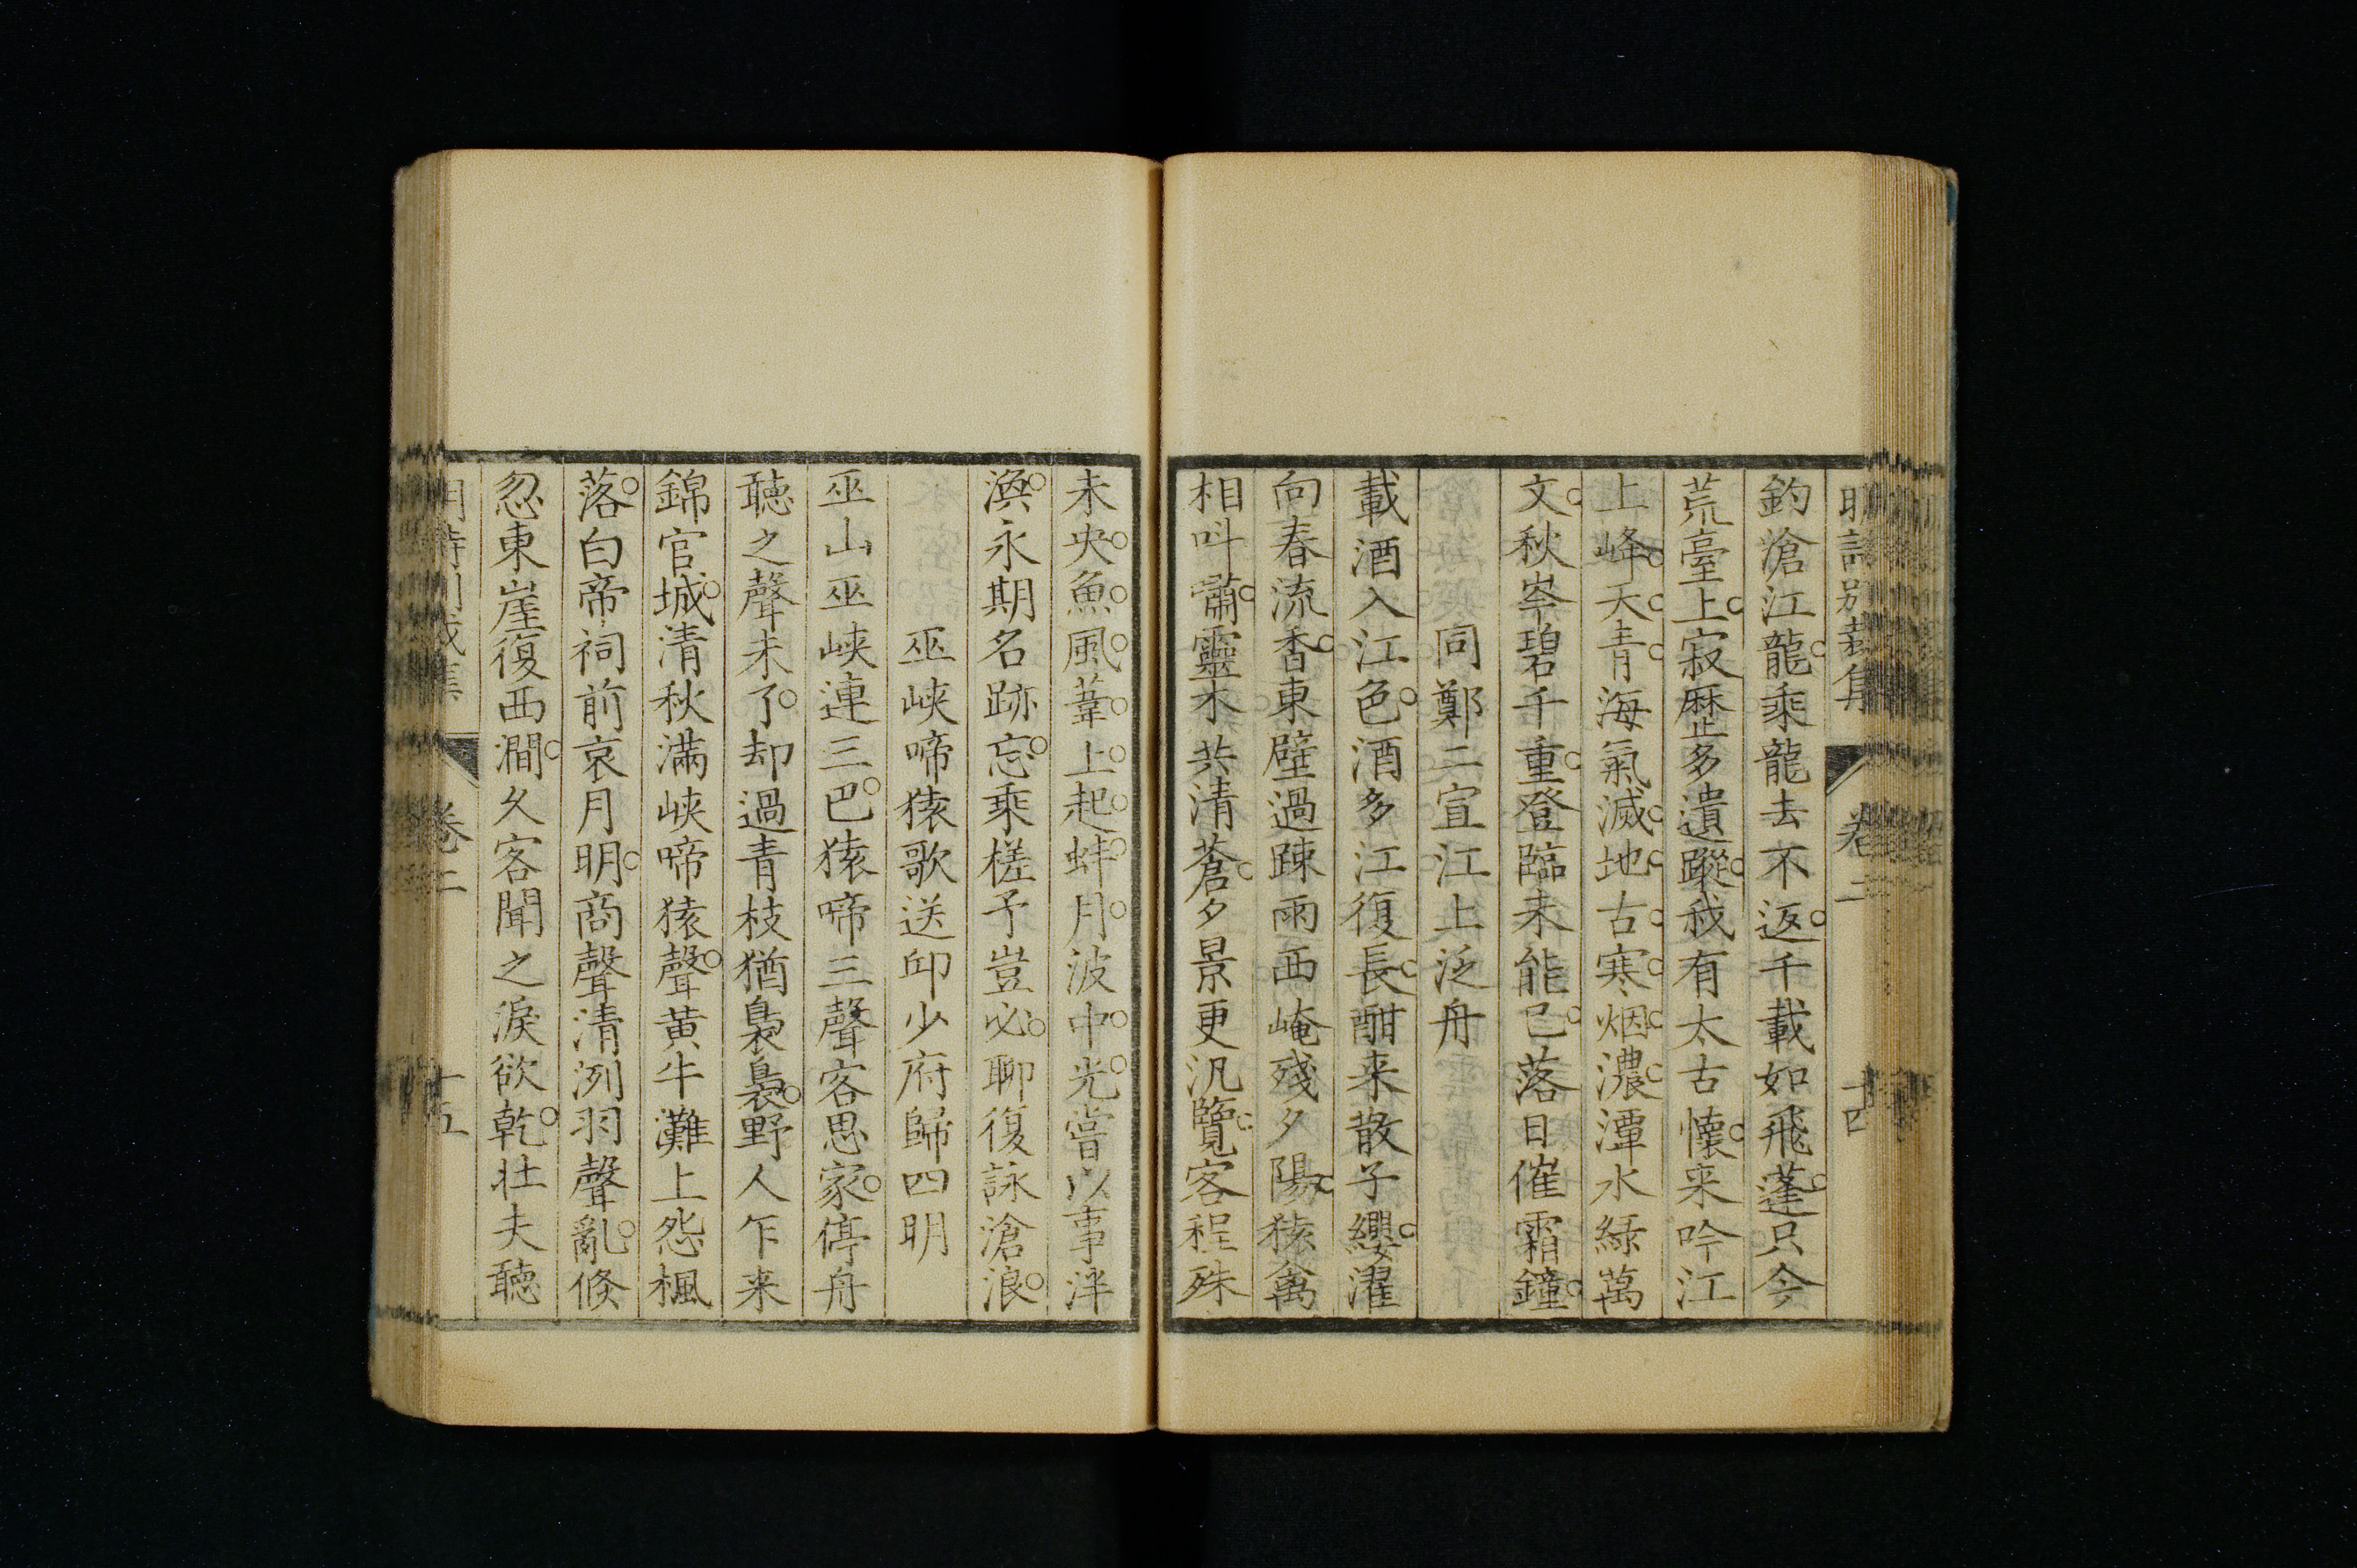 明詩別裁集 卷二 十四
釣滄江龍乘龍去不返千載如飛蓬只今
荒臺上寂歷多遺蹤我有太古懷来吟江
上峰天青海氣滅地古寒烟濃潭水緑萬
文秋岑碧千重登臨未能已落日催霜鐘
同鄭二宣江上泛舟
載酒入江色酒多江復長酣来散子纓濯
向春流香東壁過踈雨西崦殘夕陽猿禽
相呌嘯靈木共清蒼夕景更汎覽客程殊
未央魚風葦上起蚌月波中光嘗以事泮
渙永期名跡忘乘槎予豈必聊復詠滄浪
巫峽啼猿歌送邱少府歸四明
巫山巫峽連三巴猿啼三聲客思家停舟
聽之聲未了却過青枝猶裊裊野人乍来
錦官城清秋滿峽啼猿聲黃牛灘上怨楓
落白帝祠前哀月明商聲清冽羽聲亂倐
忽東崖復西澗久客聞之淚欲乾壮夫聽
明詩別裁集 卷二 十五